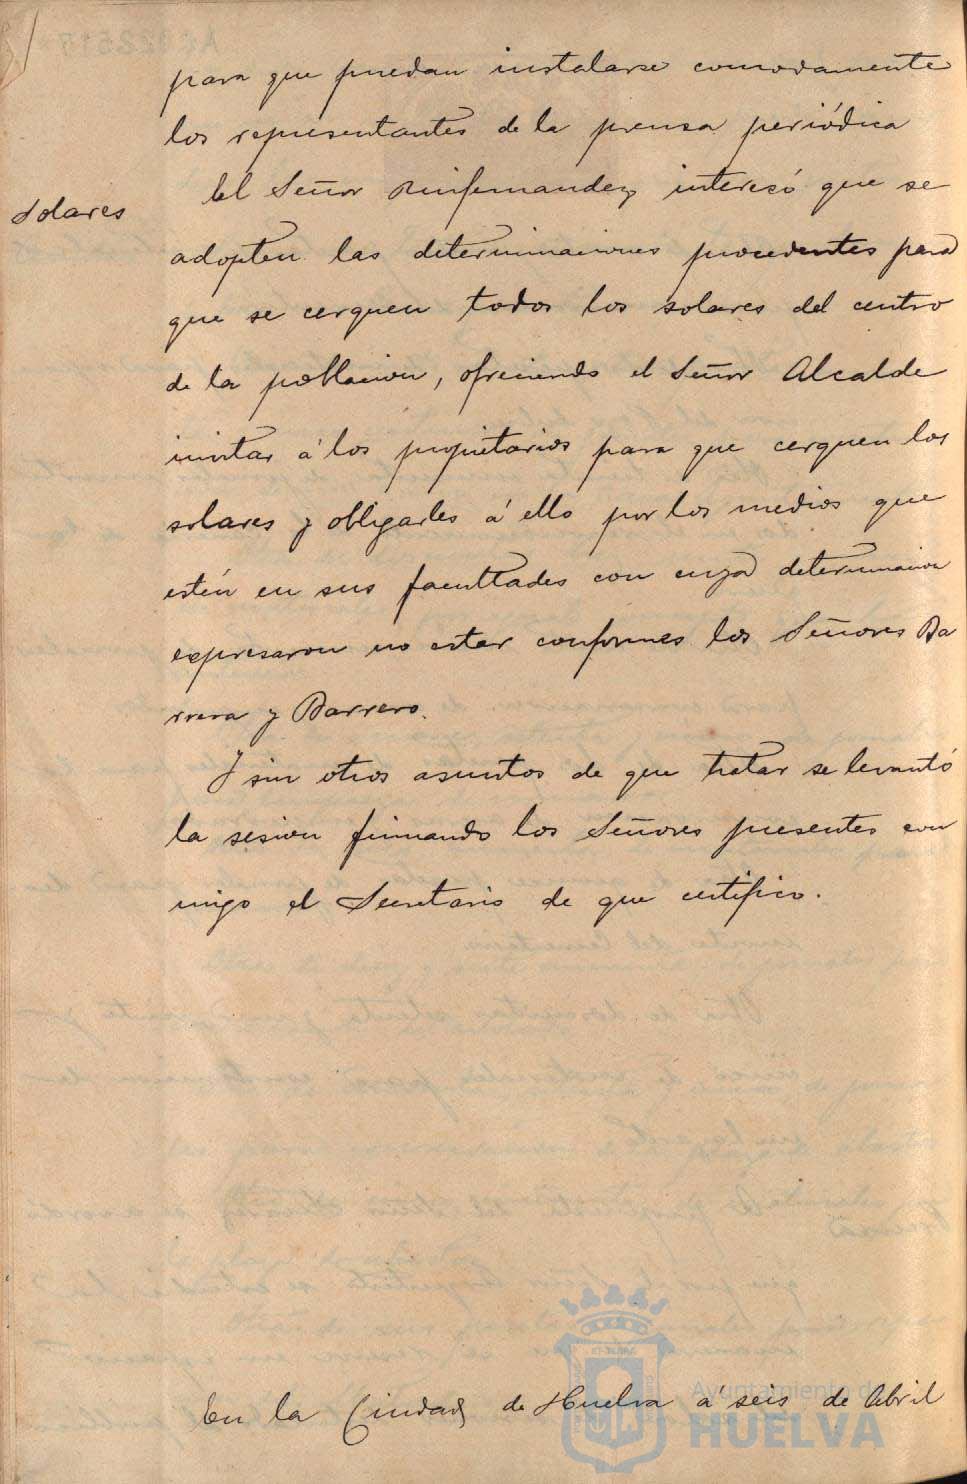 para que puedan instalarse comodamente
los representantes de la prensa periódica
Solares
El Señor Ruifernandez interesó que se
adopten las determinaciones procedentes para
que se cerquen todos los solares del centro
de la poblacion, ofreciendo el Señor Alcalde
invitar á los propietarios para que cerquen los
solares y obligarles á ello por los medios que
estén en sus facultades con cuya determinacion
expresaron no estar conformes los Señores Ba
rrera y Barrero.
Y sin otros asuntos de que tratar se levantó
la sesion firmando los Señores presentes con
migo el Secretario de que certifico.
En la Ciudad de Huelva á seis de Abril
Ayuntamiento de
HUELVA